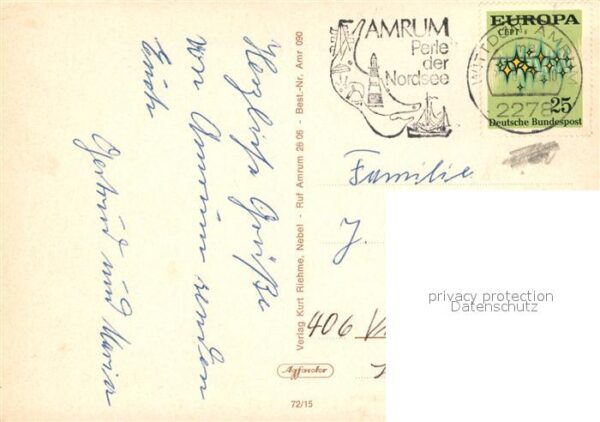 Herzliche Grüße
von Amrum senden
Euch
Gertrud und Maria
Verlag Kurt Riehme, Nebel - Ruf Amrum 26 06 - Best.-Nr. Amr 090
Agfacolor
72/15
AMRUM
Perle
der
Nordsee
WITTDÜN AMRUM
2278
EUROPA
CEPT
25
Deutsche Bundespost
Familie
J.
406
privacy protection
Datenschutz